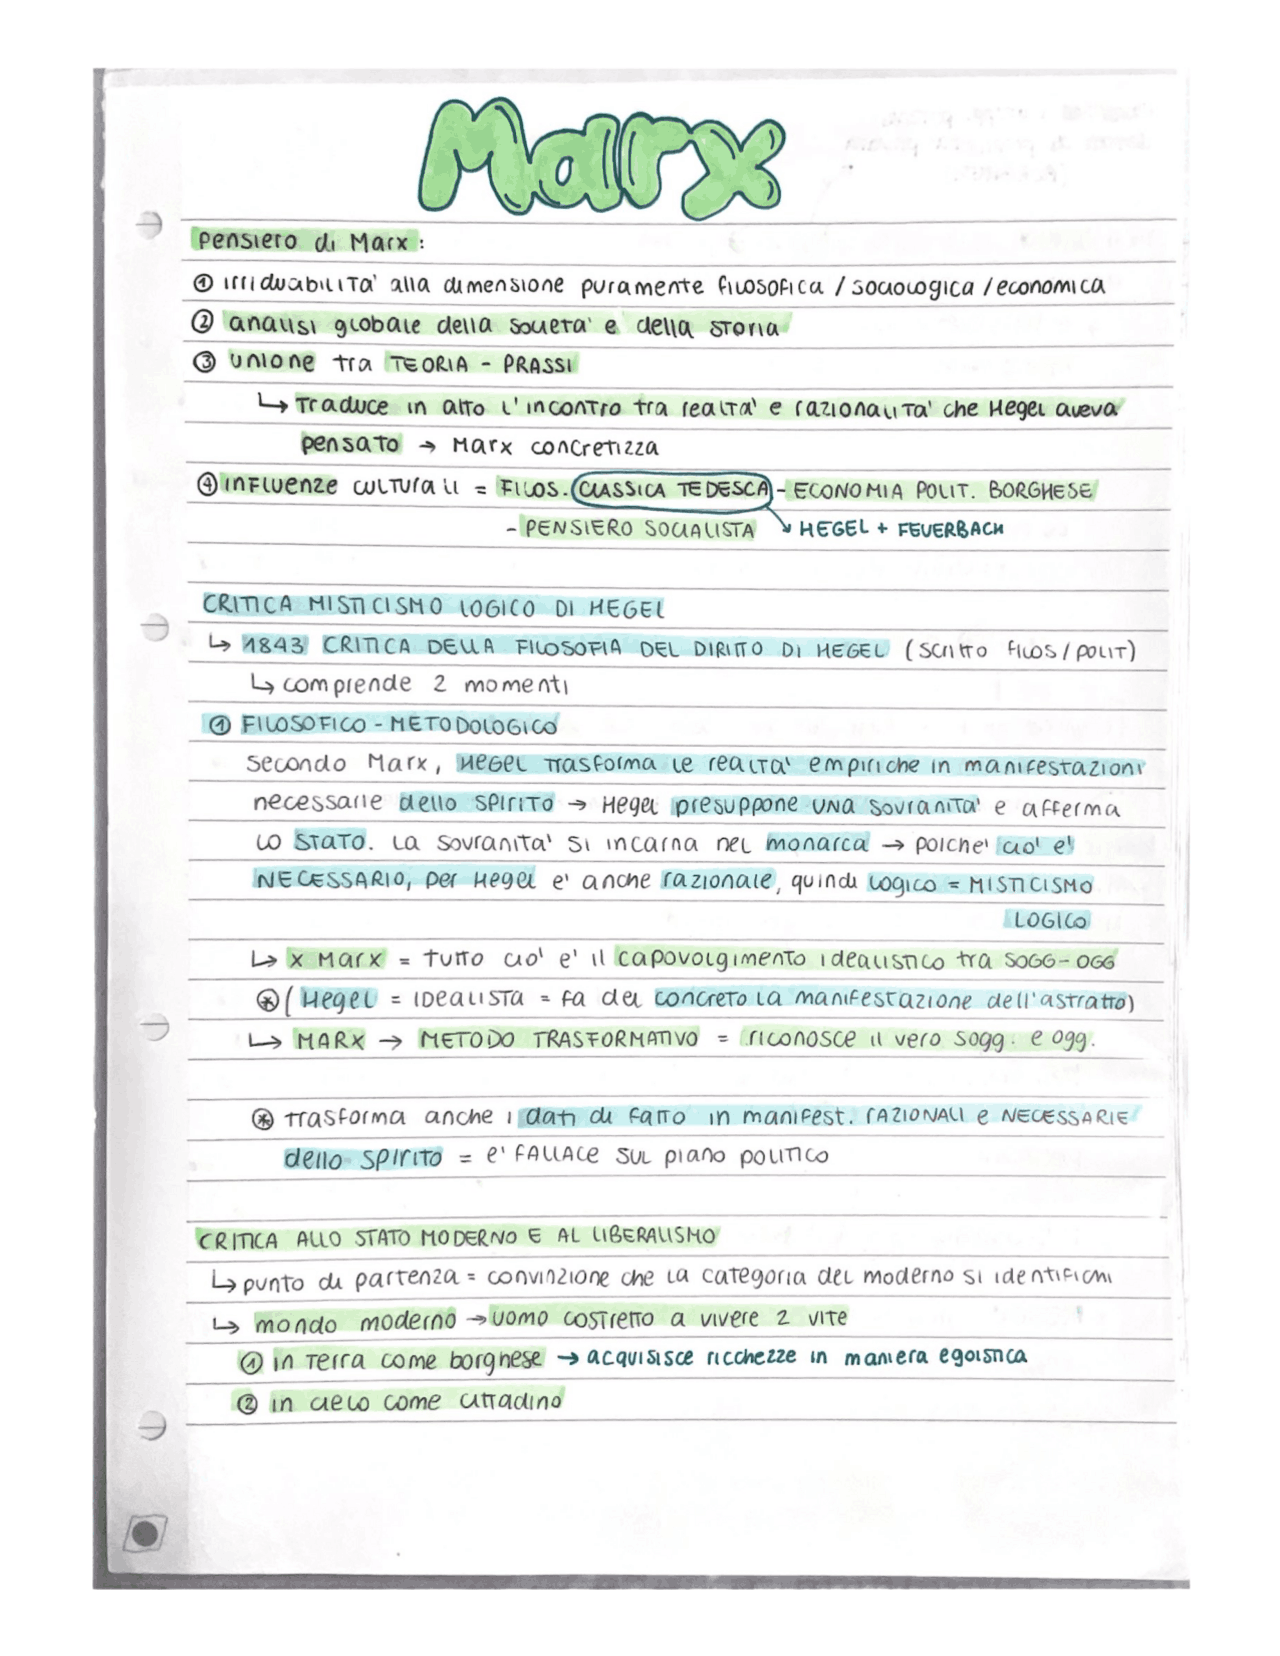 Marx
pensiero di Marx :
① irriduabilita' alla dimensione puramente filosofica / sociologica / economica
② analisi globale della società e della storia
③ unione tra TEORIA - PRASSI
↳ Traduce in atto l'incontro tra realta' e razionalita' che Hegel aveva
pensato → Marx concretizza
④ influenze culturali = FILOS. CLASSICA TEDESCA - ECONOMIA POLIT. BORGHESE
- PENSIERO SOCIALISTA ↘ HEGEL + FEUERBACH
CRITICA MISTICISMO LOGICO DI HEGEL
↳ 1843 CRITICA DELLA FILOSOFIA DEL DIRITTO DI HEGEL (scritto filos / polit)
↳ comprende 2 momenti
① FILOSOFICO - METODOLOGICO
secondo Marx, HEGEL trasforma le realta' empiriche in manifestazioni
necessarie dello SPIRITO → Hegel presuppone UNA sovranita' e afferma
lo STATO. La sovranita' si incarna nel monarca → poiche' cio' e'
NECESSARIO, per Hegel e' anche razionale, quindi logico = MISTICISMO
LOGICO
↳ x Marx = tutto cio' e' il capovolgimento idealistico tra SOGG- OGG
⊛ ( Hegel = IDEALISTA = fa del concreto la manifestazione dell'astratto)
↳ MARX → METODO TRASFORMATIVO = riconosce il vero sogg. e ogg.
⊛ trasforma anche i dati di fatto in manifest. RAZIONALI e NECESSARIE
dello SPIRITO = e' FALLACE SUL piano politico
CRITICA ALLO STATO MODERNO E AL LIBERALISMO
↳ punto di partenza = convinzione che la categoria del moderno si identifichi
↳ mondo moderno → uomo costretto a vivere 2 vite
① in Terra come borghese → acquisisce ricchezze in maniera egoistica
② in cielo come cittadino